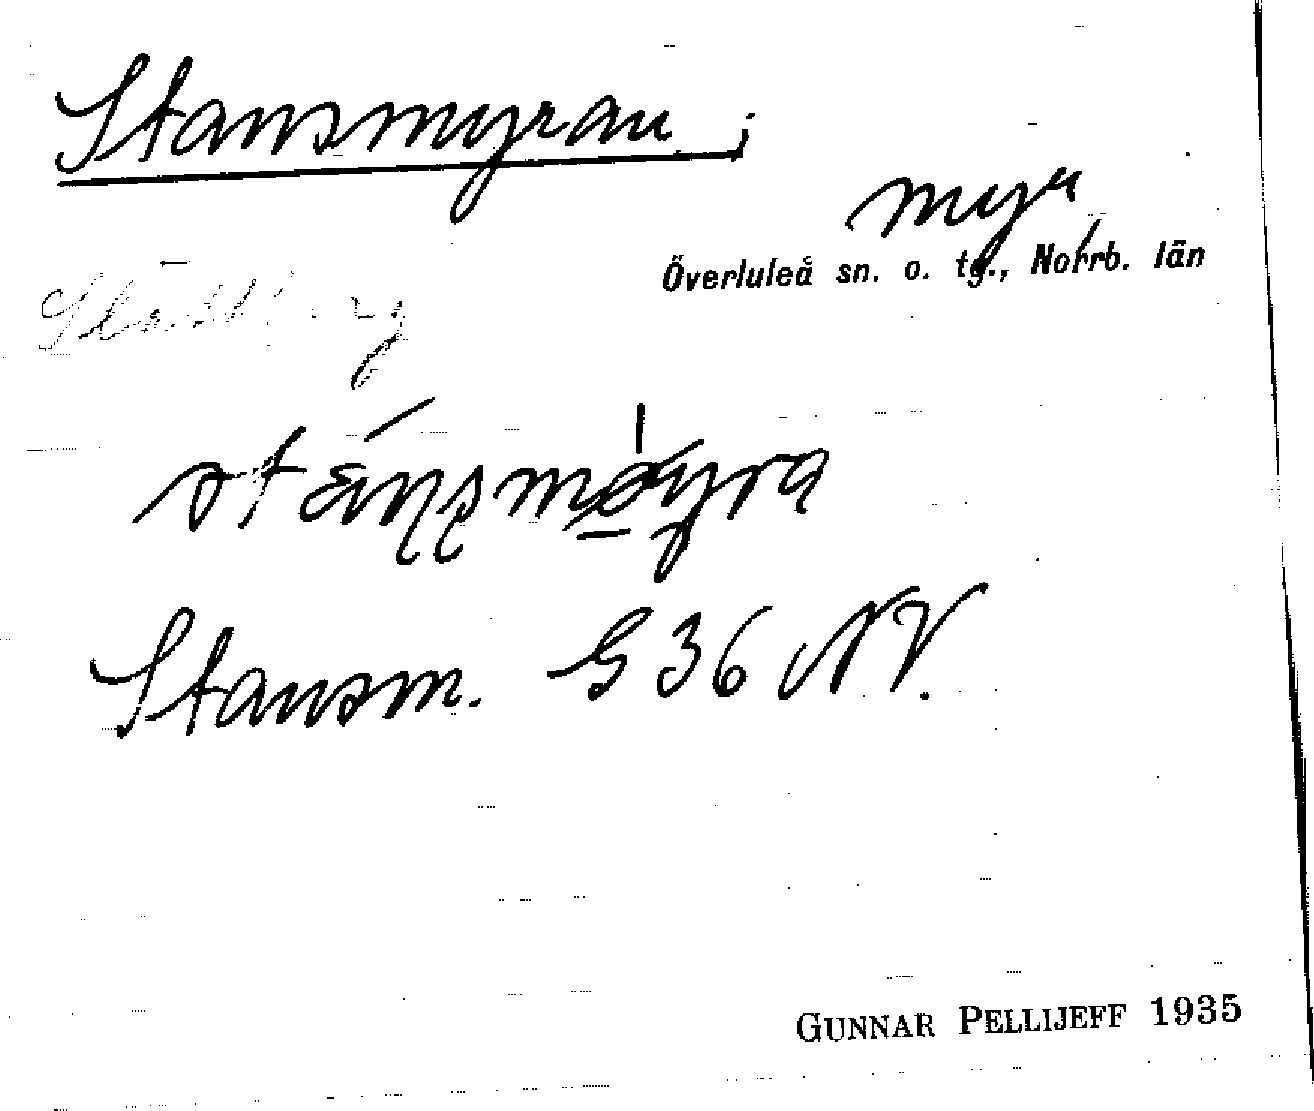 Stansmyran;
myr
Överluleå sn. o. tg., Norrb. län
Stansm. G 36 NV.
GUNNAR PELLIJEFF 1935